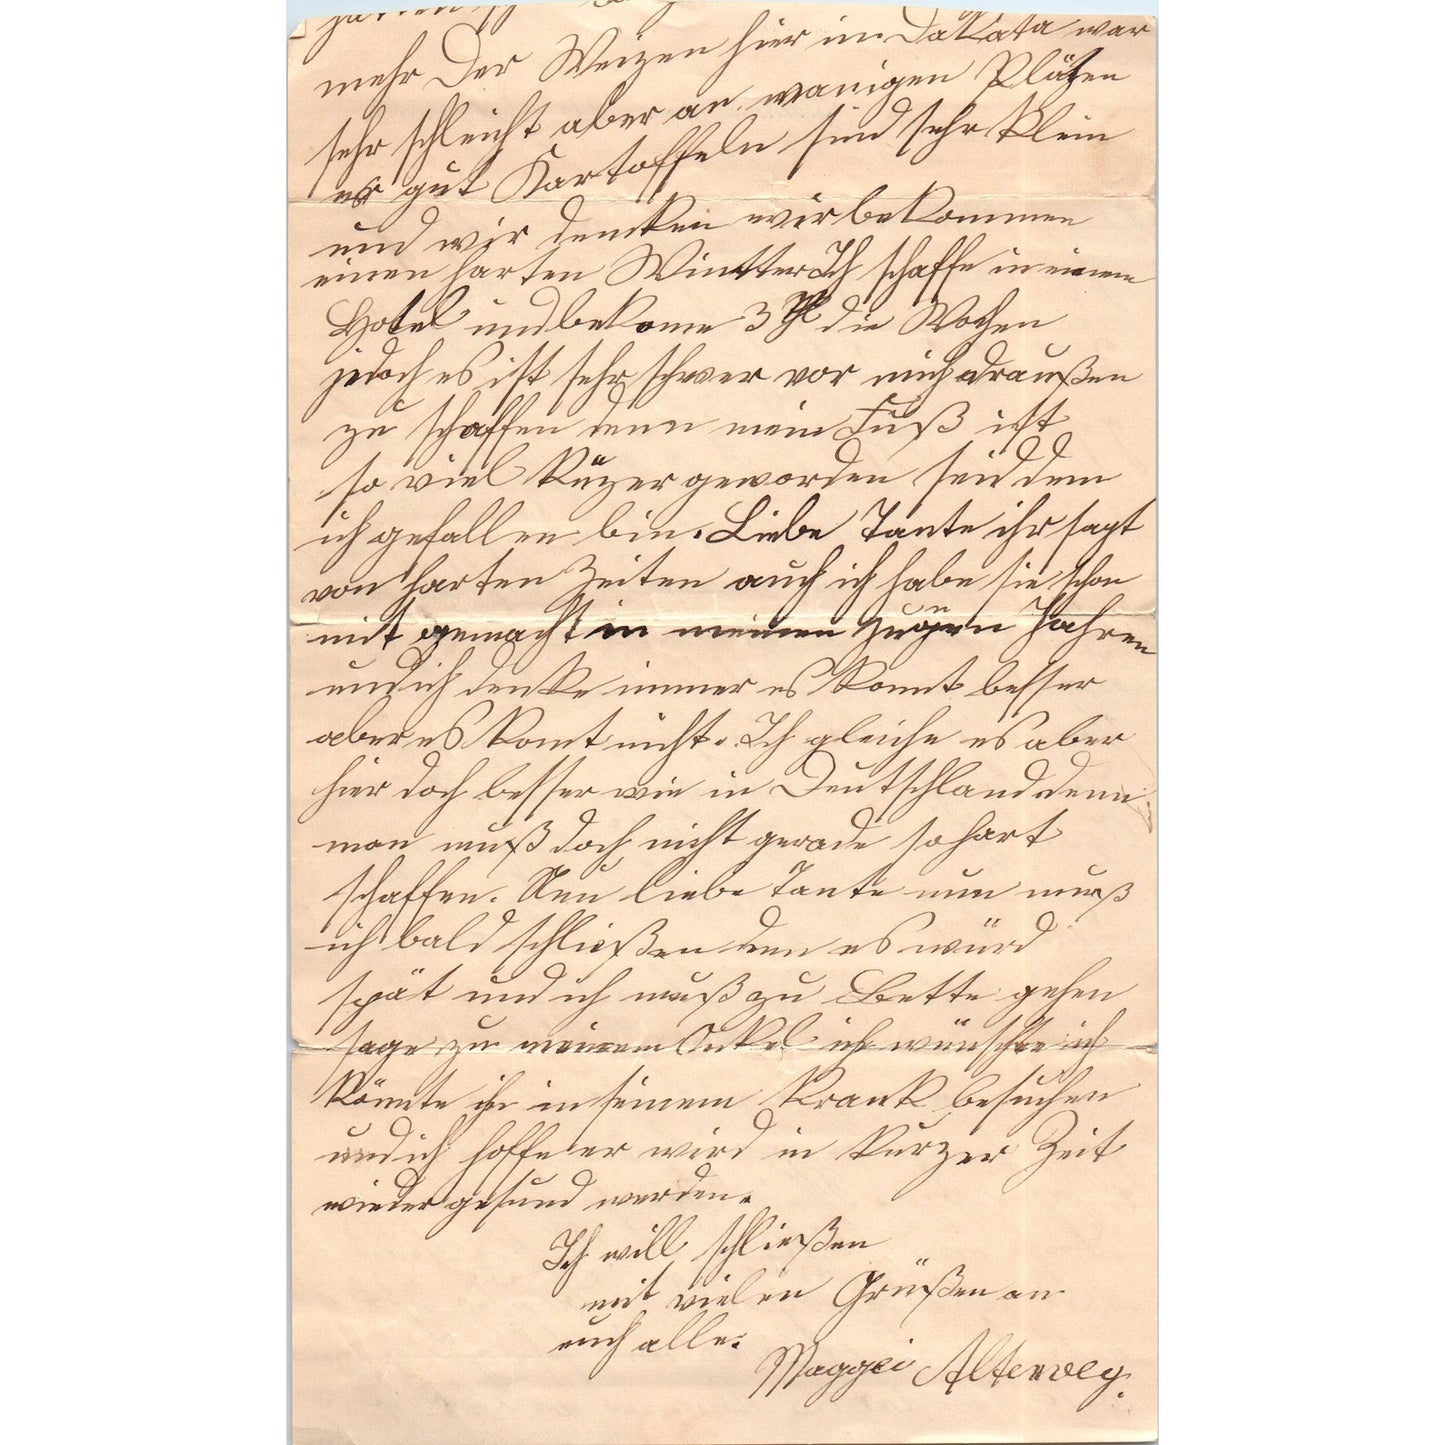 mehr Der Weizen hier in Dakata war
sehr schleicht aber an wanigen Plätzen
er gut Kartoffeln sind sehr klein
und wir dencken wir bekommen
einen harten Wintter Ich schaffe in einem
Hotel und bekome 3 die Wochen
jedoch es ist sehr schwer vor mich draußen
zu schaffen denn mein Fuß ist
so viel kürzer geworden seid dem
ich gefallen bin. Liebe Tante ihr sagt
von harten Zeiten auch ich habe sie schon
mit gemacht in meinen Jahren
und ich denke immer es komt besser
aber es komt nicht. Ich gleiche es aber
hier doch besser wie in Deutschland denn
man muß doch nicht gerade so hart
schaffen. Nun liebe Tante nun muß
ich bald schließen den es würd
spät und ich muß zu Bette gehen
sage zu meinem Onkel ich wünschte ich
könnte ihn in seinem Krank besuchen
und ich hoffe er wird in kurzer Zeit
wieder gesund werden.
Ich will schließen
mit vielen Grüßen an
euch alle.
Maggei Altervey.